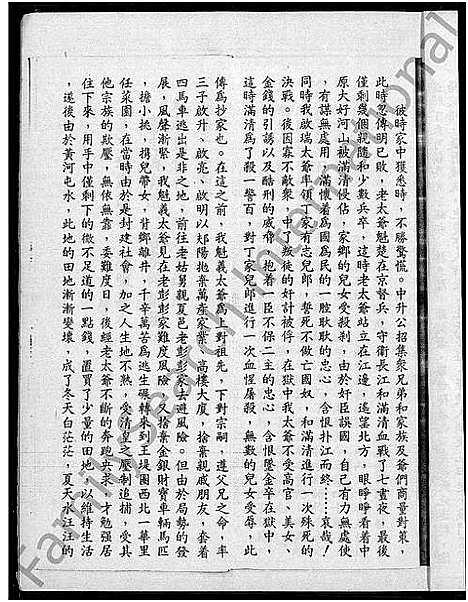 彼時家中獲悉時，不勝驚慌。中升公招集衆兄弟和家族及爺們商量對策，
此時忽傳明已敗，老太爺魁楚在京督兵，守衛長江和滿清血戰了七晝夜，最後
僅剩幾個武隨和少數兵卒，這時老太爺站立在江邊，遥望北方，眼睜睁看着中
原大好河山被滿清侵佔，家鄉的兒女受殺剎，由於奸臣誤國，自己有力無處使
，有謀無處用，滿懷着爲國爲民的一腔耿耿的忠心，含恨扑江而終……哀哉！
同時我啟瑞太爺率領丁家有志兒郎，誓死不做亡國奴，和滿清進行一次殊死的
決戰。後因寡不敵衆，中了叛徒的奸計被俘，在獄中我太爺不受高官、美女、
金錢的引誘以及酷刑的威脅，抱着一臣不保二主的忠心，含恨墜金卒在獄中，
這時滿清爲了殺一警百，對丁家兒郎進行一次血惺屠殺，無數的兒女受辱，此
傳爲抄家也。在這之前，我魁義太爺爲上對祖先，下對宗嗣，遵父兄之命，率
三子啟升、啟亮、啟明以郏陽拋棄萬產家業，高樓大廈，捨棄親戚朋友，套着
四馬車逃出是非之地，前往老姑舅親夏邑老彭彭家去避風險。但由於局勢的發
展，風聲漸緊，我魁義太爺見在老彭彭家難度風險，又捨棄金銀財寶車輛馬匹
，擔小挑，携兒帶女，背鄉離井，千辛萬苦爲逃生碾轉來到王堤圈西北一華里
任菜園，在當時由於是封建社會，加之人生地不熟，受清皇之壓制追捕，受其
他宗族的欺壓，無依無靠，委難度日，後經老太爺不斷的奔跑央求，才勉强居
住下來，用手中僅剩下的微不足道的一點錢，置買了少量的田地，以維持生活
，遂後由於黄河屯水，此地的田地漸漸變壞，成了冬天白茫茫，夏天水汪汪的
FamilySearch International